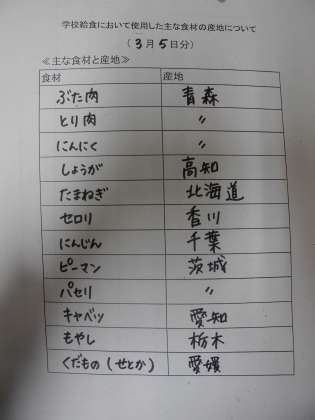 学校給食において使用した主な食材の産地について
（3月5日分）
≪主な食材と産地≫
食材 産地
ぶた肉 青森
とり肉 〃
にんにく 〃
しょうが 高知
たまねぎ 北海道
セロリ 香川
にんじん 千葉
ピーマン 茨城
パセリ 〃
キャベツ 愛知
もやし 栃木
くだもの（せとか） 愛媛